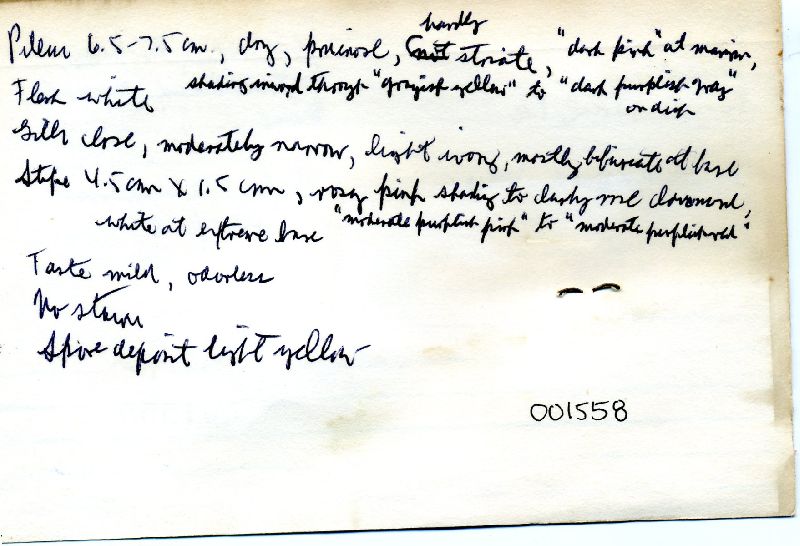 hardly
Pileus 6.5-7.5 cm, dry, pruinose, (not striate, "dark pink" at margin,
shading inward through "grayish yellow" to "dark purplish gray"
on disk
Flesh white
Gills close, moderately narrow, light ivory, mostly bifurcate at base
Stipe 4.5 cm X 1.5 cm, rosy pink shading to dusky rose downward,
white at extreme base "moderate purplish pink" to "moderate purplish red"
Taste mild, odorless
No stain
Spore deposit light yellow
001558